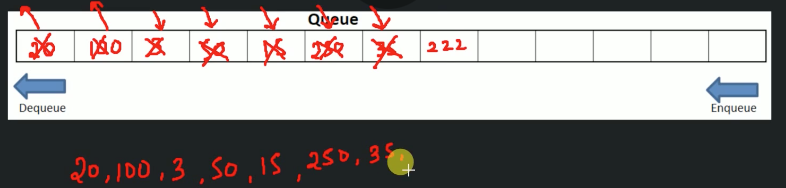 Queue
20 100 3 50 15 250 35 222
Dequeue Enqueue
20, 100, 3, 50, 15, 250, 35.